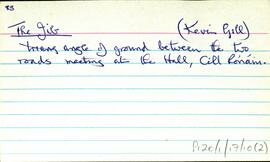 83
The Jib (Kevin Gill)
Triang angle of ground between the two
roads meeting at the Hall, Cill Rónáin.
P120/1/17/10(2)